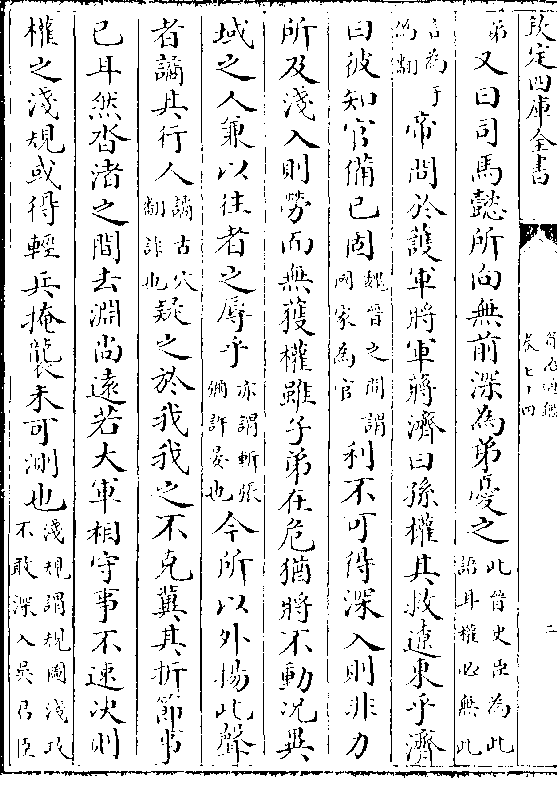 欽定四庫全書
資治通鑑
卷七十四
二
弟又曰司馬懿所向無前深為弟憂之此晉史臣為此語耳權必無此
言為于偽翻帝問於護軍將軍蔣濟曰孫權其救遼東乎濟
曰彼知官備已固魏晉之間謂國家為官利不可得深入則非力
所及淺入則勞而無獲權雖子弟在危猶將不動況異
域之人兼以往者之辱乎亦謂斬張彌許晏也今所以外揚此聲
者譎其行人譎古穴翻詐也疑之於我我之不克冀其折節事
已耳然沓渚之間去淵尚遠若大軍相守事不速決則
權之淺規或得輕兵掩襲未可測也淺規謂規圖淺攻不敢深入吳乃臣